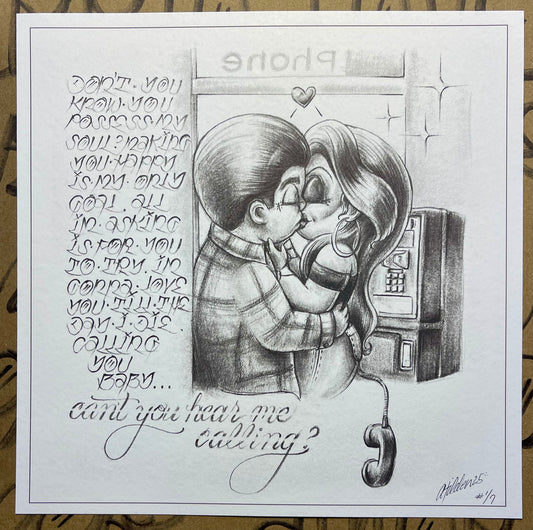 Phone
DON'T·YOU
KNOW·YOU
POSSESS·MY
SOUL? MAKING
YOU·HAPPY
IS·MY·ONLY
GOAL. ALL
IM·ASKING
IS·FOR·YOU
TO·TRY. IM
GONNA·LOVE
YOU·TILL·THE
DAY·I·DIE.
CALLING
YOU
BABY...
can't you hear me
calling?
#1/7